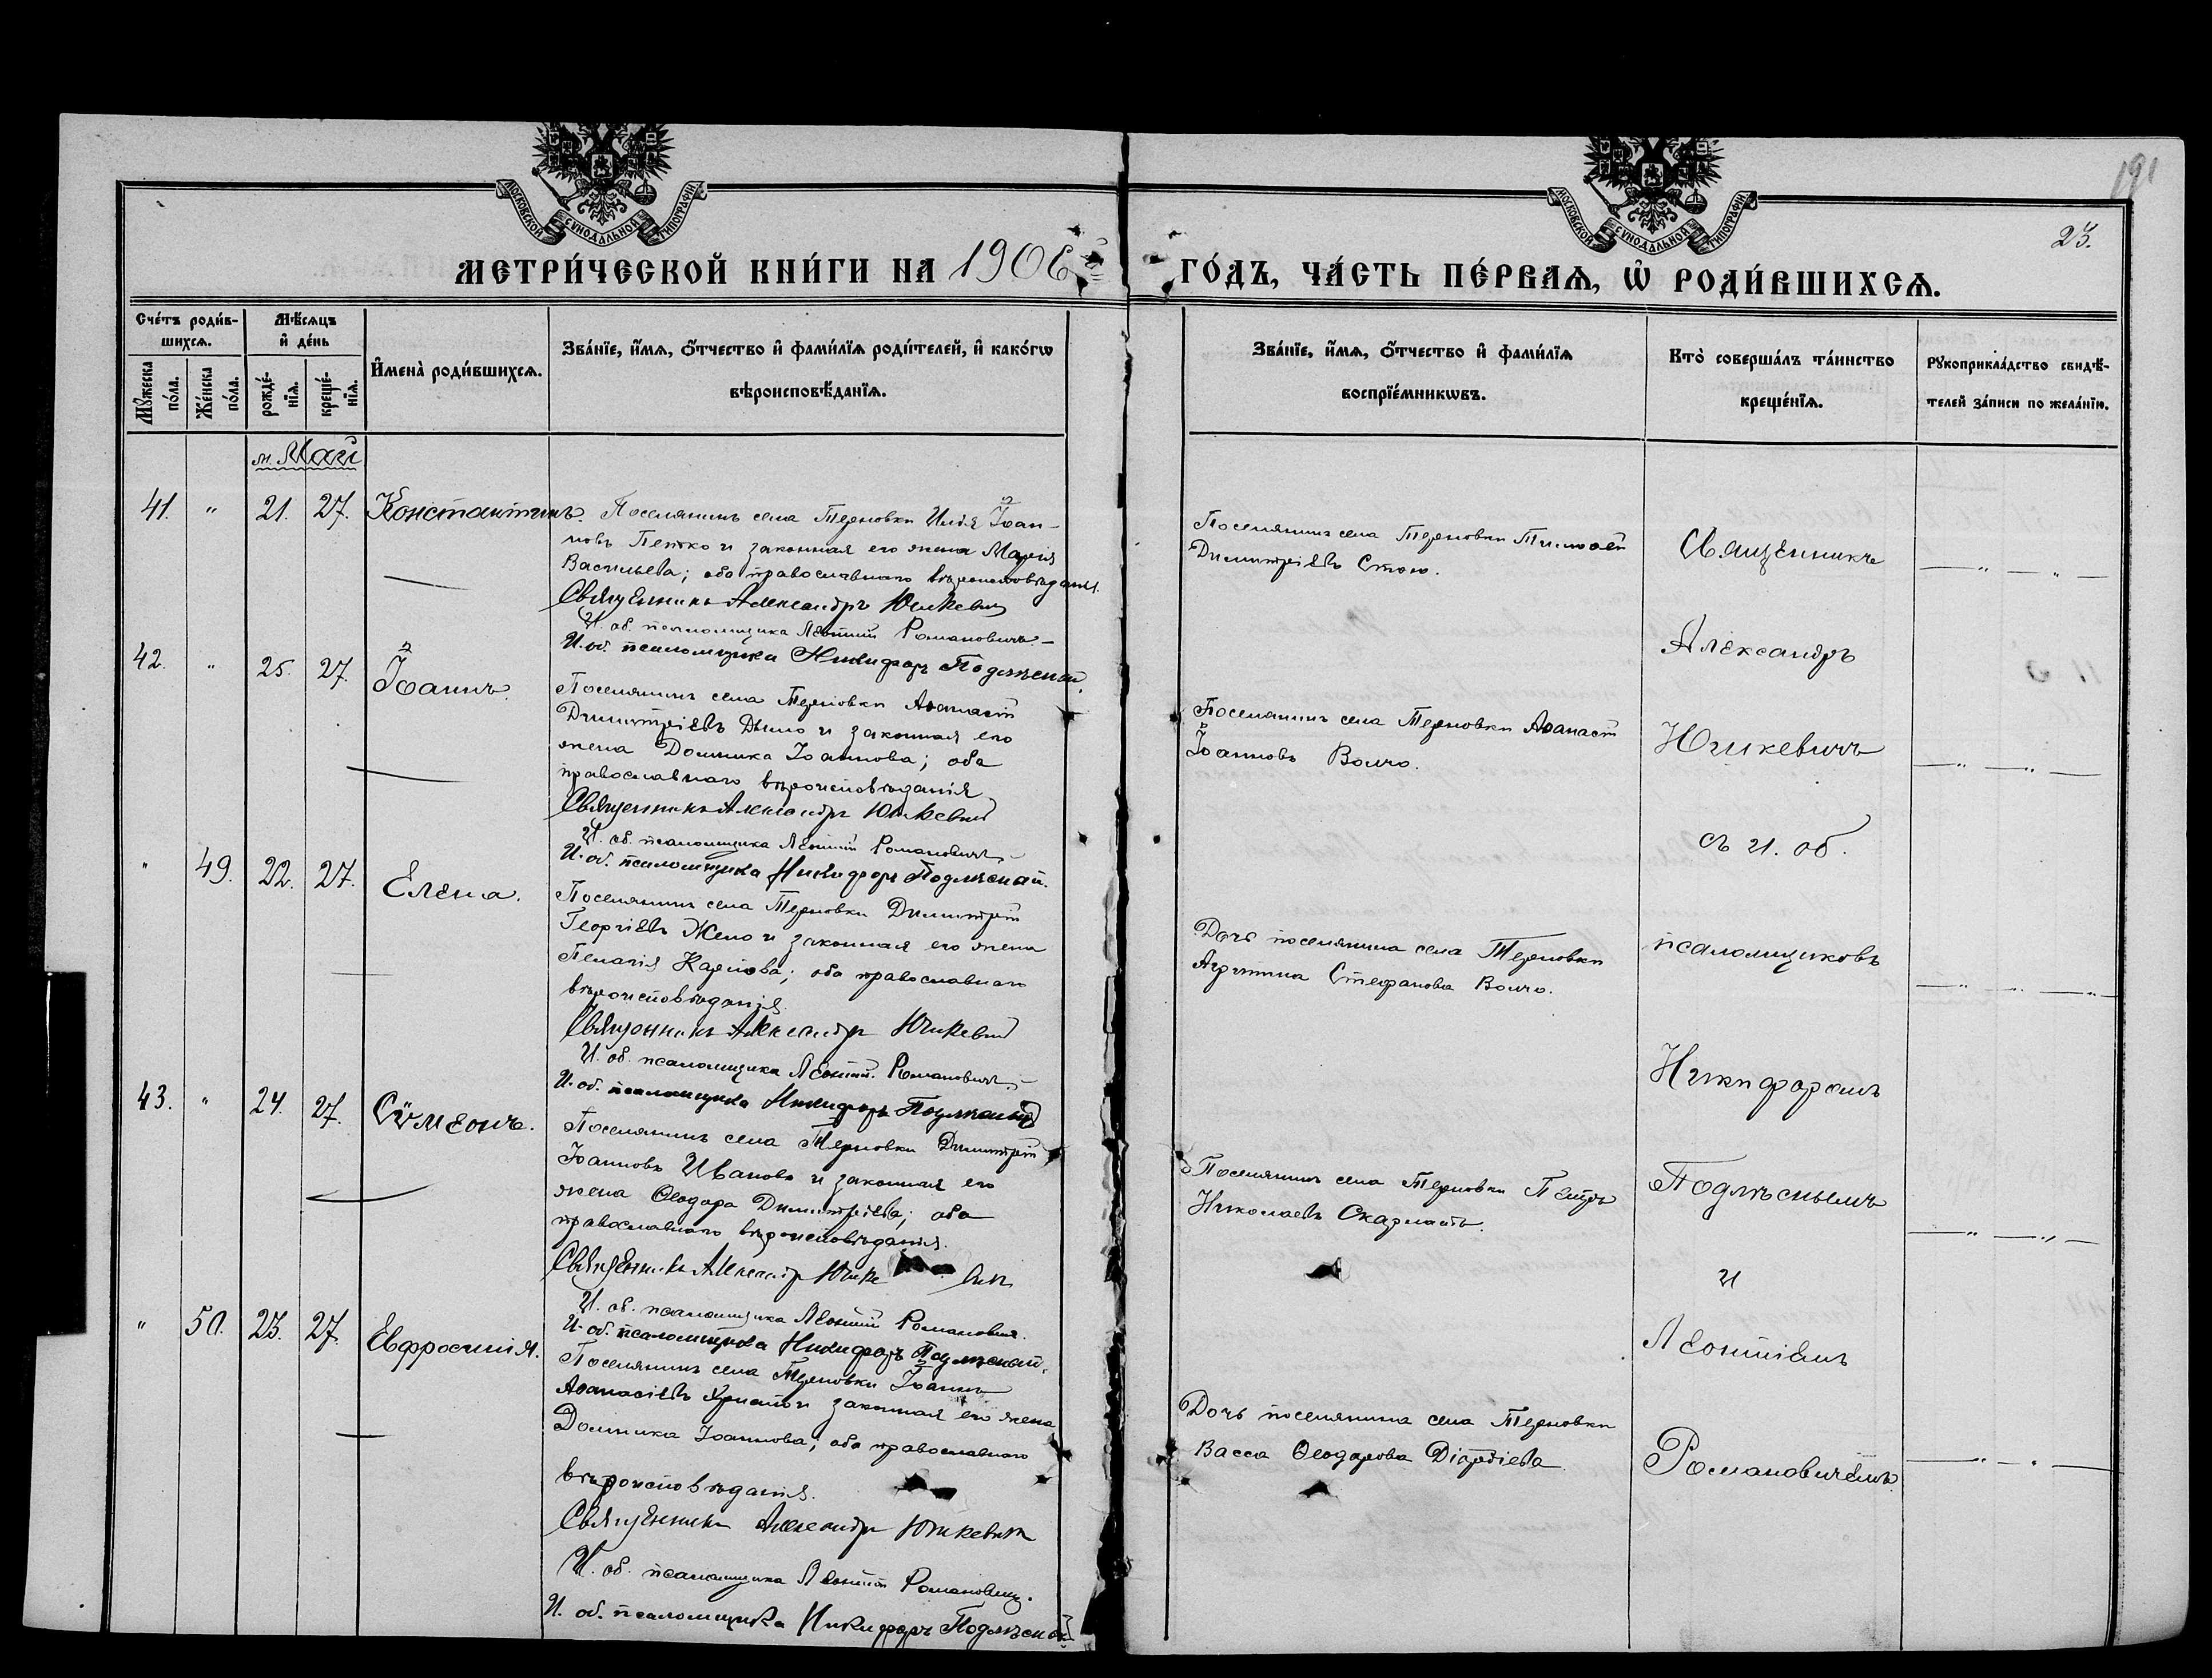 191
23.
МОСКОВСКОЙ СѴНОДАЛЬНОЙ ТИПОГРАФІИ
МОСКОВСКОЙ СѴНОДАЛЬНОЙ ТИПОГРАФІИ
МЕТРИ́ЧЕСКОЙ КНИ́ГИ НА 1906
ГО́ДЪ, ЧА́СТЬ ПЕ́РВАѦ, Ѡ҆ РОДИ́ВШИХСѦ.
Сче́тъ роди́в-
шихсѧ.
Мѣ́сѧцъ
и҆ де́нь
Мꙋ́жеска по́ла.
Же́нска по́ла.
рожде́-нїѧ.
креще́-нїѧ.
И҆мена̀ роди́вшихсѧ.
Зва́нїе, и҆́мѧ, ѻ҆́тчество и҆ фами́лїѧ роди́телей, и҆ како́гѡ
вѣроисповѣ́данїѧ.
Зва́нїе, и҆́мѧ, ѻ҆́тчество и҆ фами́лїѧ
воспрїе́мникѡвъ.
Кто̀ соверша́лъ та́инство
креще́нїѧ.
Рꙋкоприкла́дство свидѣ́-
телей за́писи по жела́нїю.
м. Май
41. " 21. 27. Константинъ.
Поселянинъ села Терновки Илія Іоан-
новъ Петко и законная его жена Марія
Васильева; оба православнаго вѣроисповѣданія.
Священникъ Александръ Юшкевич
И. об. псаломщика Леонтій Романовичъ
И. об. псаломщика Никифоръ Подлѣсный.
Поселянинъ села Терновки Тимоѳей
Димитріевъ Стою.
42. " 25. 27. Іоаннъ.
Поселянинъ села Терновки Аѳанасій
Димитріевъ Дымо и законная его
жена Домника Іоаннова; оба
православнаго вѣроисповѣданія
Священникъ Александръ Юшкевич
И. об. псаломщика Леонтій Романовичъ.
И. об. псаломщика Никифоръ Подлѣсный.
Поселянинъ села Терновки Аѳанасій
Іоанновъ Волчо.
" 49. 22. 27. Елена.
Поселянинъ села Терновки Димитрій
Георгіевъ Жело и законная его жена
Пелагія Карпова; оба православнаго
вѣроисповѣданія.
Священникъ Александръ Юшкевич
И. об. псаломщика Леонтій Романовичъ.
И. об. псаломщика Никифоръ Подлѣсный
Дочь поселянина села Терновки
Агрипина Стефанова Волчо.
43. " 24. 27. Сѵмеонъ.
Поселянинъ села Терновки Димитрій
Іоанновъ Ивановъ и законная его
жена Ѳеодора Димитріева; оба
православнаго вѣроисповѣданія.
Священникъ Александръ Юшке вич
И. об. псаломщика Леонтій Романовичъ.
И. об. псаломщика Никифоръ Подлѣсный.
Поселянинъ села Терновки Петръ
Николаевъ Скарлатъ.
" 50. 23. 27. Евфросинія.
Поселянинъ села Терновки Іоаннъ
Аѳанасіевъ Христо и законная его жена
Домника Іоаннова; оба православнаго
вѣроисповѣданія.
Священникъ Александръ Юшкевич
И. об. псаломщика Леонтій Романовичъ.
И. об. псаломщика Никифоръ Подлѣсный
Дочь поселянина села Терновки
Васса Ѳеодорова Діордіева
Священникъ
Александръ
Юшкевичъ
съ и. об.
псаломщиковъ
Никифоромъ
Подлѣснымъ
и
Леонтіемъ
Романовичемъ.